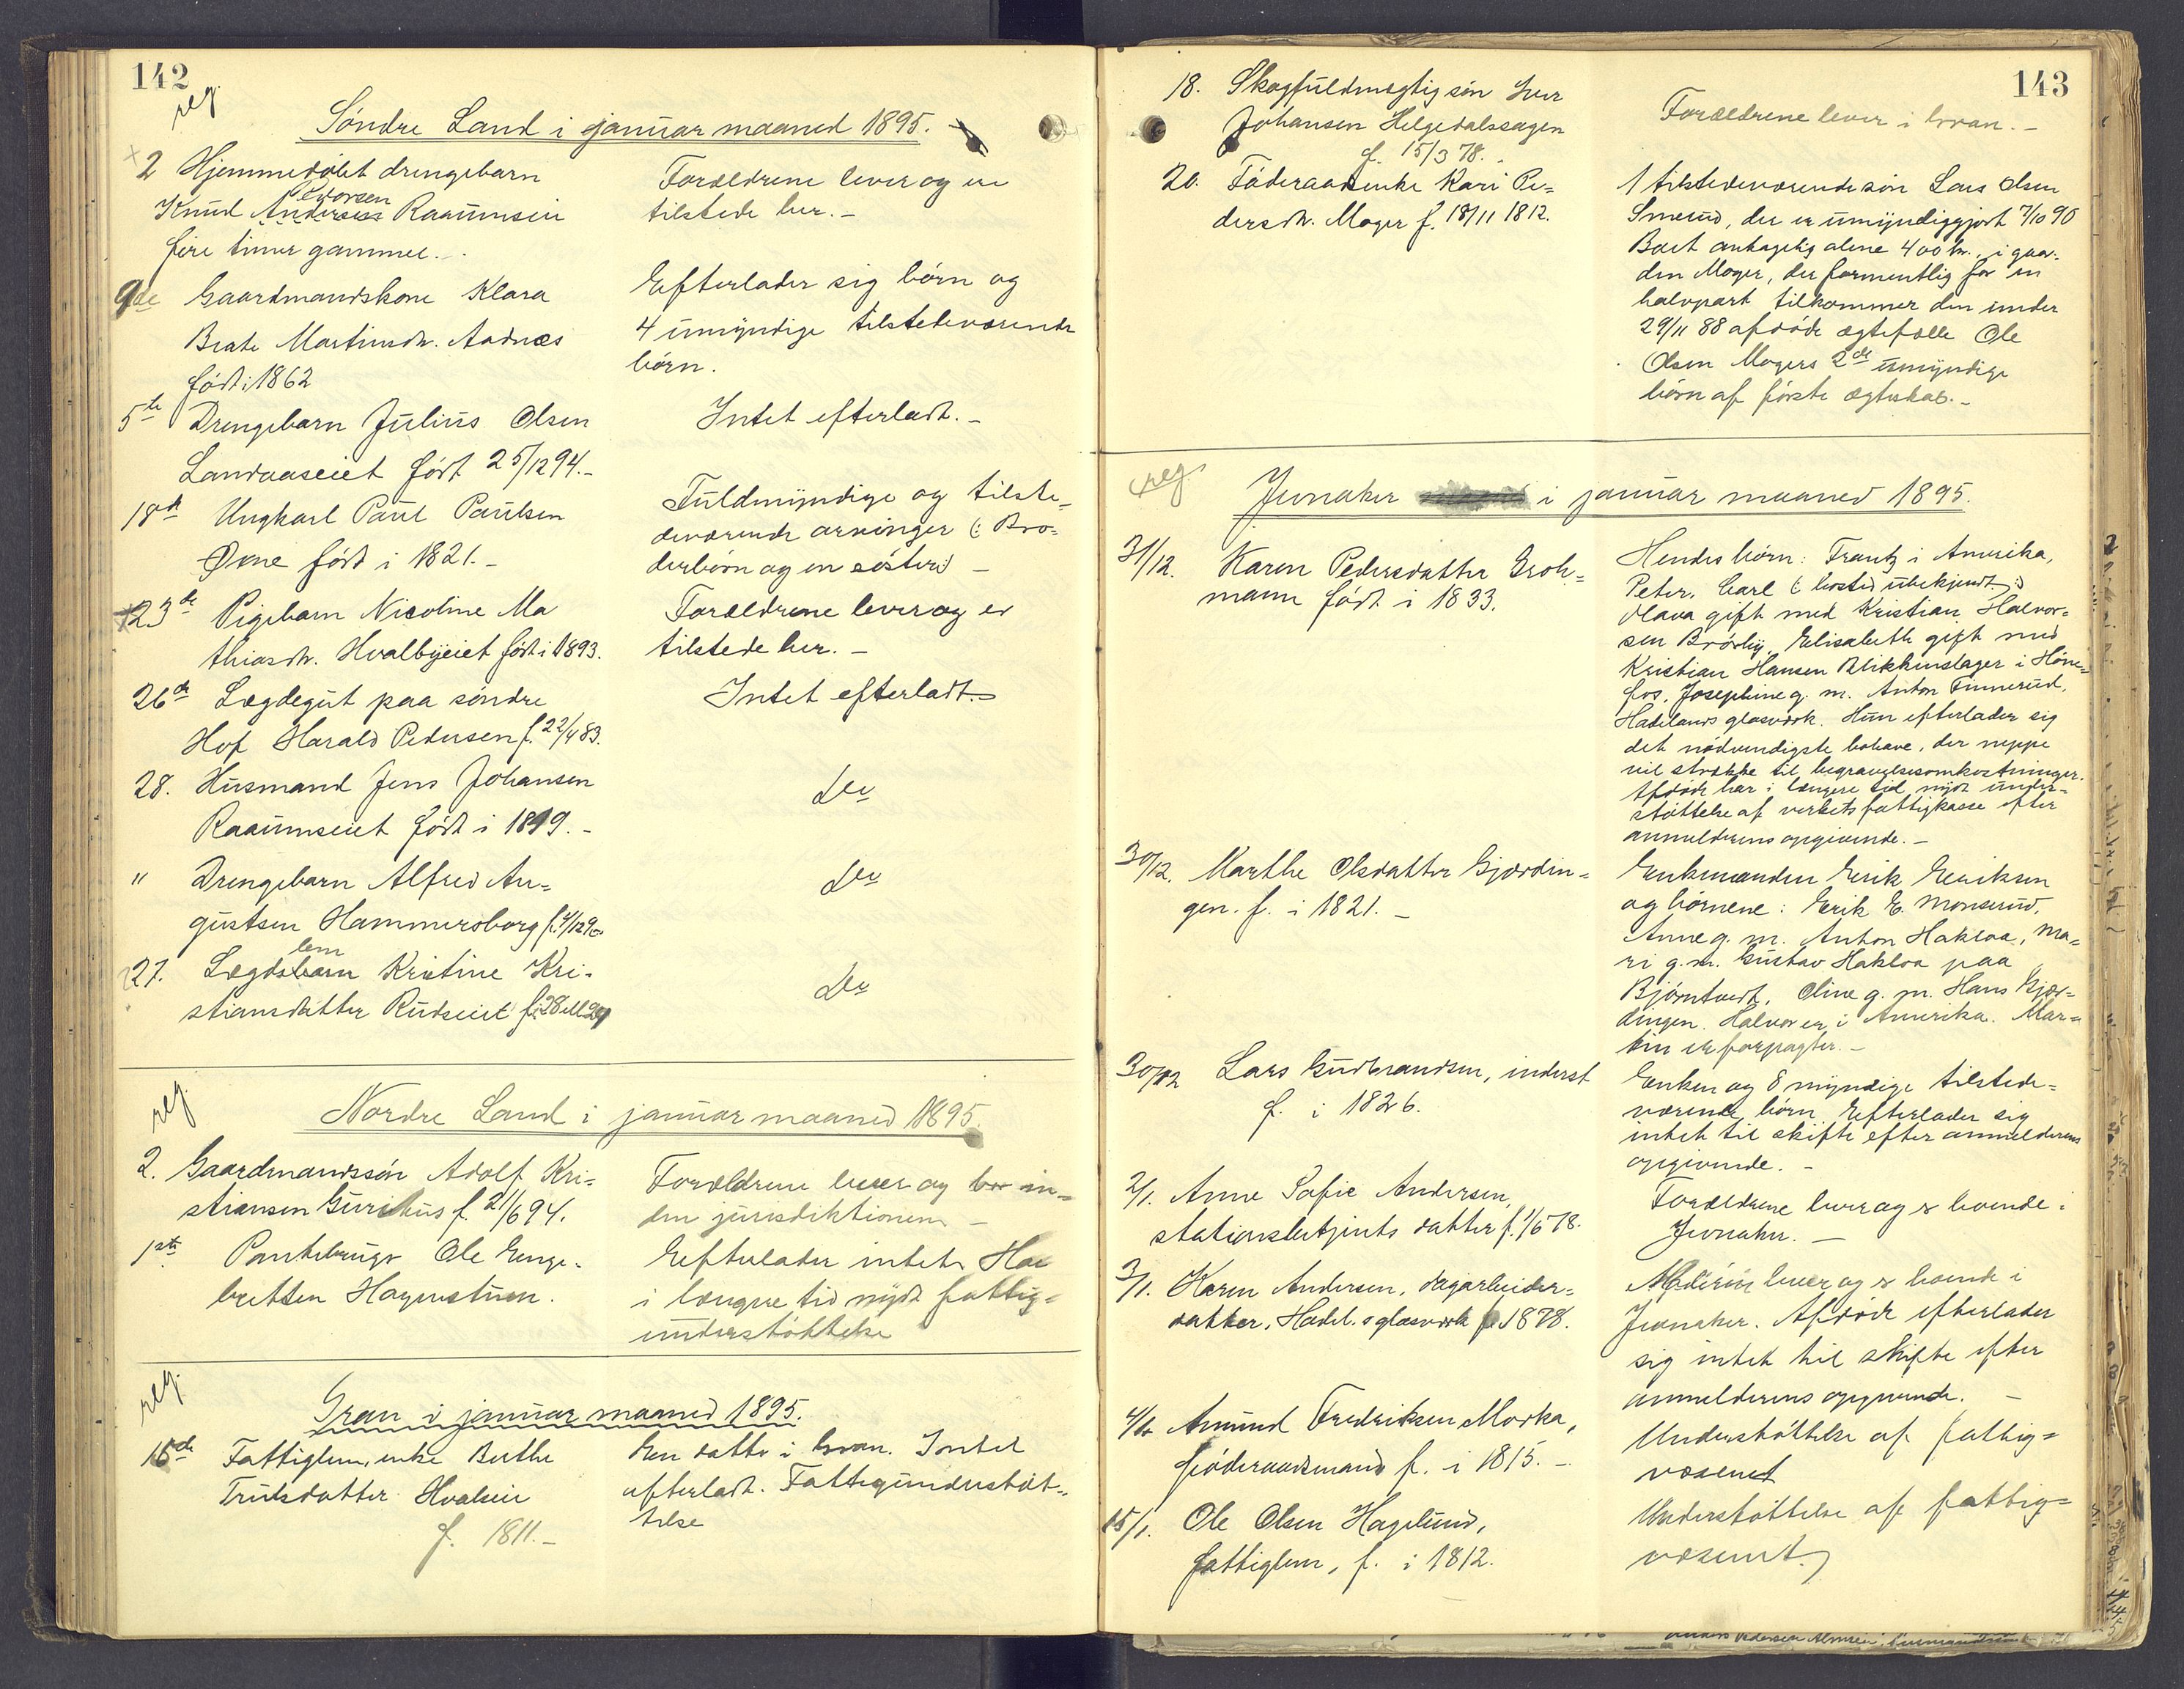 142
reg.
Søndre Land i januar maaned 1895.
2 Hjemmedøbt drengebarn
Pedersen
Knud Andersen Raaumseie
fire timer gammel.
Forældrene lever og er
tilstede her. -
9de Gaardmandskone Klara
Beate Martinsdr. Aadnæs
født i 1862
Efterlader sig børn og
4 umyndige tilstedeværende
børn.
5te Drengebarn Julius Olsen
Landaaseiet født 25/12 94. -
Intet efterladt. -
18de Ungkarl Paul Paulsen
Øvne født i 1821. -
Fuldmyndige og tilste-
deværende arvinger (: Bro-
derbørn og en søster:) -
+23de Pigebarn Nicoline Ma
thiasdr. Hvalbyeiet født i 1893.
Forældrene lever og er
tilstede her. -
26de Lægdegut paa søndre
Hof Harald Pedersen f. 22/4 83.
Intet efterladt. -
28. Husmand Jens Johansen
Raaumseiet født i 1819. -
Do
" Drengebarn Alfred Au-
gustsen Hammersborg f. 4/12 90
Do
lem
27. Lægdsbarn Kristine Kri-
stiansdatter Rudseiet f. 28 ell 29
Do
reg.
Nordre Land i januar maaned 1895.
2. Gaardmandssøn Adolf Kri-
stiansen Gurihus f. 21/6 94.
Forældrene lever og bor in-
den jurisdiktionen -
1ste Pantebruger Ole Enge-
bretsen Hagenstuen.
Efterlader intet. Har
i længere tid nydt fattig-
understøttelse
reg.
Gran i januar maaned 1895.
15de Fattiglem, enke Berthe
Trulsdatter Hvalseie
f. 1811. -
En datter i Gran. Intet
efterladt. Fattigunderstøt-
telse
143
18. Skogfuldmægtig søn Iver
Johansen Helgedalssagen
f. 15/3 78.
Forældrene lever i Gran. -
20. Føderaadsenke Kari Pe-
dersdr. Moger f. 18/11 1812.
1 tilstedeværende søn Lars Olsen
Smerud, der er umyndiggjort 7/10 90
Boet antagelig alene 400 kr. i gaar-
den Moger, der formentlig for en
halvpart tilkommer den under
29/11 88 afdøde ægtefælle Ole
Olsen Mogers 2de umyndige
børn af første ægteskab. -
reg.
Jevnaker i januar maaned 1895.
31/12. Karen Pedersdatter Groh-
mann født i 1833.
Hendes børn: Frantz i Amerika,
Peter, Carl (: bosted ubekjendt :)
Olava gift med Kristian Halvor-
sen Brørby, Elisabeth gift med
Kristian Hansen Blikkenslager i Høne-
fos, Josephine g. m. Anton Finnerud,
Hadelands glasværk. Hun efterlader sig
det nødvendigste bohave, der neppe
vil strække til begravelsesomkostninger.
Afdøde har i længere tid nydt under-
støttelse af verkets fattigkasse efter
anmelderens opgivende. -
30/12. Marthe Olsdatter Gjærdin-
gen. f. i 1821. -
Enkemanden Erik Eriksen
og børnene: Erik E. Monserud,
Anne g. m. Anton Hakloa, Ma-
ri g.m. Gustav Hakloa paa
Bjørntvedt, Oline g. m. Hans Gjær-
dingen. Halvor er i Amerika. Mar-
tin er forpagter. -
30/12 Lars Gudbrandsen, inderst
f. i 1826.
Enken og 8 myndige tilstede-
værende børn. Efterlader sig
intet til skifte efter anmelderens
opgivende. -
2/1. Anne Sofie Andersen,
stationsbetjents datter f. 1/5 78.
Forældrene lever og er boende i
Jevnaker. -
3/1. Karen Andersen, dagarbeider-
datter, Hadel.s glasværk f. 1878.
Moderen lever og er boende i
Jevnaker. Afdøde efterlader
sig intet til skifte efter
anmelderens opgivende. -
4/1. Amund Fredriksen Morka,
føderaadsmand f. i 1815. -
Understøttelse af fattig-
væsenet
15/1. Ole Olsen Hagelund,
fattiglem, f. i 1812.
Understøttelse af fattig-
væsenet.